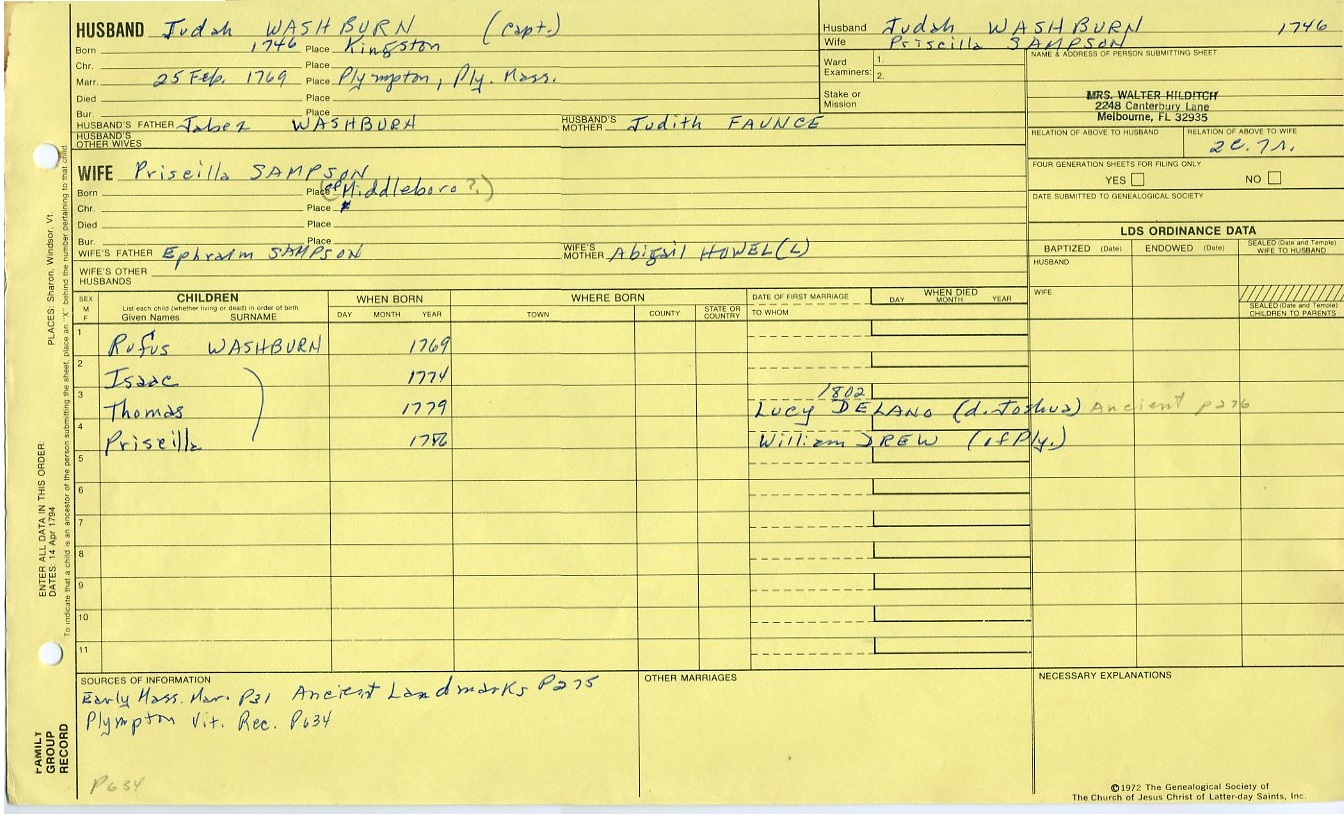 HUSBAND Judah WASHBURN (Capt.)
Born 1746 Place Kingston
Chr. Place
Marr. 25 Feb. 1769 Place Plympton, Ply. Mass.
Died Place
Bur. Place
HUSBAND'S FATHER Jabez WASHBURN HUSBAND'S MOTHER Judith FAUNCE
HUSBAND'S OTHER WIVES
Husband Judah WASHBURN 1746
Wife Priscilla SAMPSON
Ward Examiners: 1.
2.
Stake or Mission
NAME & ADDRESS OF PERSON SUBMITTING SHEET
MRS. WALTER HILDITCH
2248 Canterbury Lane
Melbourne, FL 32935
RELATION OF ABOVE TO HUSBAND RELATION OF ABOVE TO WIFE
2c. 7r.
FOUR GENERATION SHEETS FOR FILING ONLY
YES NO
DATE SUBMITTED TO GENEALOGICAL SOCIETY
WIFE Priscilla SAMPSON
Born Place (of Middleboro ?)
Chr. Place
Died Place
Bur. Place
WIFE'S FATHER Ephraim SAMPSON WIFE'S MOTHER Abigail HOWEL(L)
WIFE'S OTHER HUSBANDS
LDS ORDINANCE DATA
BAPTIZED (Date) ENDOWED (Date) SEALED (Date and Temple) WIFE TO HUSBAND
HUSBAND
WIFE
SEALED (Date and Temple) CHILDREN TO PARENTS
SEX M F CHILDREN WHEN BORN WHERE BORN DATE OF FIRST MARRIAGE WHEN DIED
List each child (whether living or dead) in order of birth
Given Names SURNAME DAY MONTH YEAR TOWN COUNTY STATE OR COUNTRY TO WHOM DAY MONTH YEAR
1 Rufus WASHBURN 1769
2 Isaac 1774
3 Thomas 1779 1802 Lucy DELANO (d. Joshua) Ancient p276
4 Priscilla 1786 William DREW (of Ply.)
5
6
7
8
9
10
11
SOURCES OF INFORMATION
Early Mass. Mar. P31 Ancient Landmarks P275
Plympton Vit. Rec. P634
P634
OTHER MARRIAGES
NECESSARY EXPLANATIONS
©1972 The Genealogical Society of
The Church of Jesus Christ of Latter-day Saints, Inc.
FAMILY GROUP RECORD
ENTER ALL DATA IN THIS ORDER:
DATES: 14 Apr 1794
PLACES: Sharon, Windsor, Vt.
To indicate that a child is an ancestor of the person submitting the sheet, place an "X" behind the number pertaining to that child